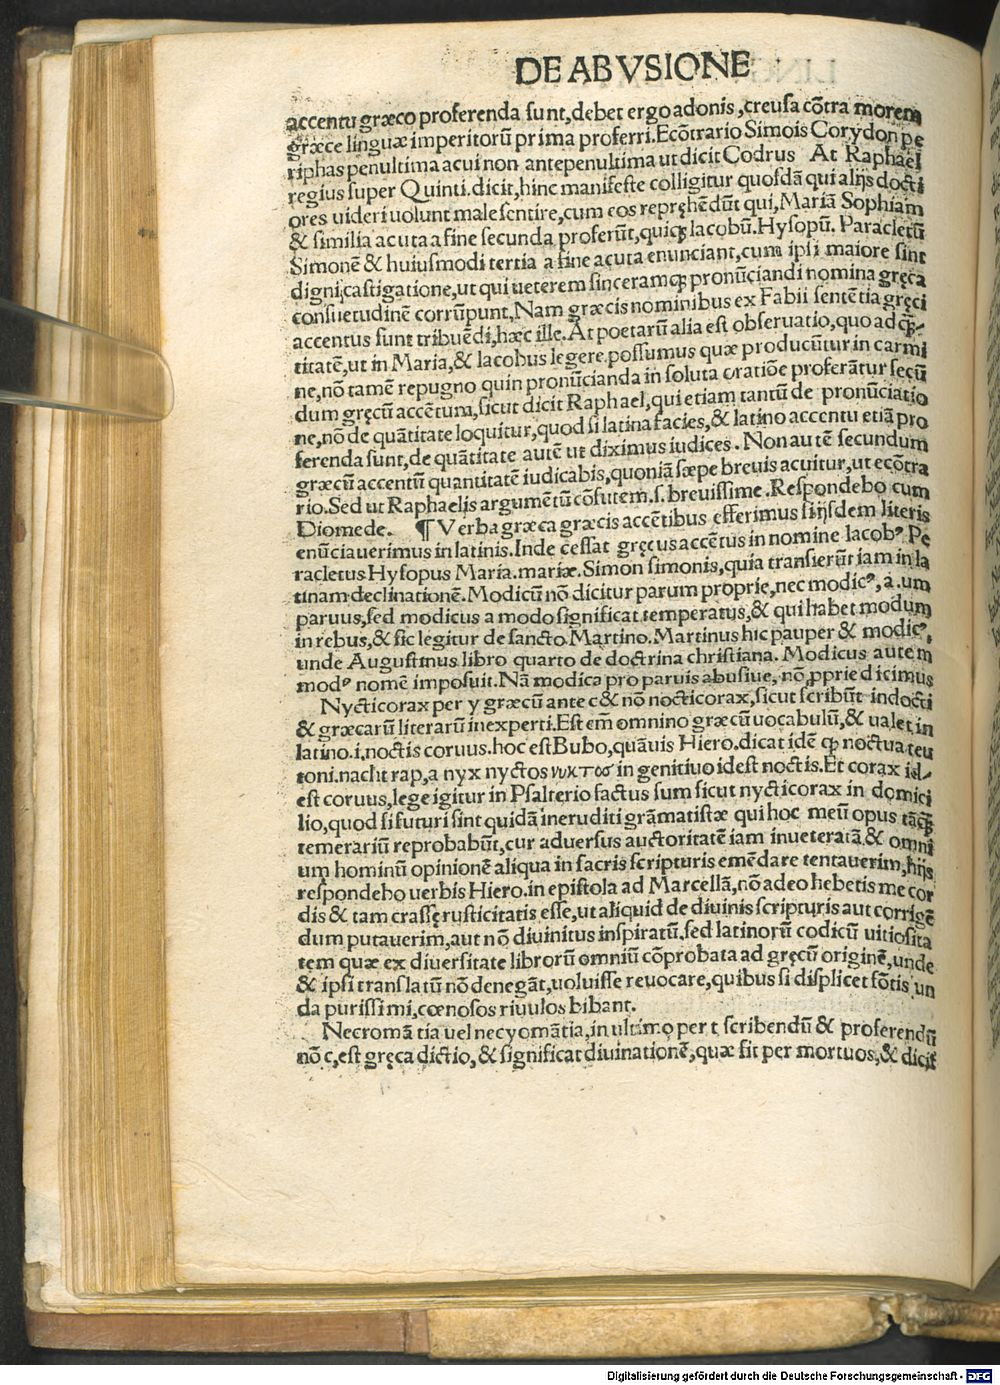 DE ABVSIONE
accentu græco proferenda sunt, debet ergo adonis, creusa cõtra morem
græce linguæ imperitorũ prima proferri. Ecõtrario Simois Corydon pe
riphas penultima acui non antepenultima ut dicit Codrus At Raphael
regius super Quinti. dicit, hinc manifeste colligitur quosdã qui alijs docti
ores uideri uolunt male sentire, cum eos repręhẽdũt qui, Mariã Sophiam
& similia acuta a fine secunda proferũt, quiqꝫ Iacobũ. Hysopũ. Paracletũ
Simonẽ & huiusmodi tertia a fine acuta enunciant, cum ipsi maiore sint
digni castigatione, ut qui ueterem sinceramqꝫ pronũciandi nomina gręca
consuetudinẽ corrũpunt, Nam græcis nominibus ex Fabii sentẽtia gręci
accentus sunt tribuẽdi, hæc ille. At poetarũ alia est obseruatio, quo ad qꝫ̃-
titatẽ, ut in Maria, & Iacobus legere possumus quæ producũtur in carmi
ne, nõ tamẽ repugno quin pronũcianda in soluta oratiõe proferãtur secũ
dum gręcũ accẽtum, sicut dicit Raphael, qui etiam tantũ de pronũciatio
ne, nõ de quãtitate loquitur, quod si latina facies, & latino accentu etiã pro
ferenda sunt, de quãtitate autẽ ut diximus iudices. Non autẽ secundum
græcũ accentũ quantitatẽ iudicabis, quoniã sæpe breuis acuitur, ut ecõtra
rio. Sed ut Raphaelis argumẽtũ cõfutem. s. breuissime. Respondebo cum
Diomede. ¶ Verba græca græcis accẽtibus efferimus si ijsdem literis
enũciauerimus in latinis. Inde cessat gręcus accẽtus in nomine Iacobꝰ Pe
racletus Hysopus Maria. mariæ. Simon simonis, quia transierũt iam in la
tinam declinationẽ. Modicũ nõ dicitur parum proprie, nec modicꝰ, a. um
paruus, sed modicus a modo significat temperatus, & qui habet modum
in rebus, & sic legitur de sancto Martino. Martinus hic pauper & modicꝰ,
unde Augustinus libro quarto de doctrina christiana. Modicus autem
modꝰ nomẽ imposuit. Nã modica pro paruis abusiue, nõ ꝓprie dicimus
Nycticorax per y græcũ ante c & nõ nocticorax, sicut scribũt indocti
& græcarũ literarũ inexperti. Est em̃ omnino græcũ uocabulũ, & ualet in
latino. i. noctis coruus. hoc est Bubo, quãuis Hiero. dicat idẽ qꝫ noctua teu
toni. nacht rap, a nyx nyctos νυκτοσ in genitiuo id est noctis. Et corax id-
est coruus, lege igitur in Psalterio factus sum sicut nycticorax in domici
lio, quod si futuri sint quidã ineruditi grãmatistæ qui hoc meũ opus tãqꝫ̃
temerariũ reprobabũt, cur aduersus auctoritatẽ iam inueteratã & omni
um hominũ opinionẽ aliqua in sacris scripturis emẽdare tentauerim, hijs
respondebo uerbis Hiero. in epistola ad Marcellã, nõ adeo hebetis me cor
dis & tam crassę rusticitatis esse, ut aliquid de diuinis scripturis aut corrigẽ
dum putauerim, aut nõ diuinitus inspiratũ. sed latinorũ codicũ uitiosita
tem quæ ex diuersitate librorũ omniũ cõprobata ad gręcũ originẽ, unde
& ipsi translatũ nõ denegãt, uoluisse reuocare, quibus si displicet fõtis un
da purissimi, cœnosos riuulos bibant.
Necromãtia uel necyomãtia, in ultimo per t scribendũ & proferendũ
nõ c, est gręca dictio, & significat diuinationẽ, quæ fit per mortuos, & dicit
Digitalisierung gefördert durch die Deutsche Forschungsgemeinschaft - DFG